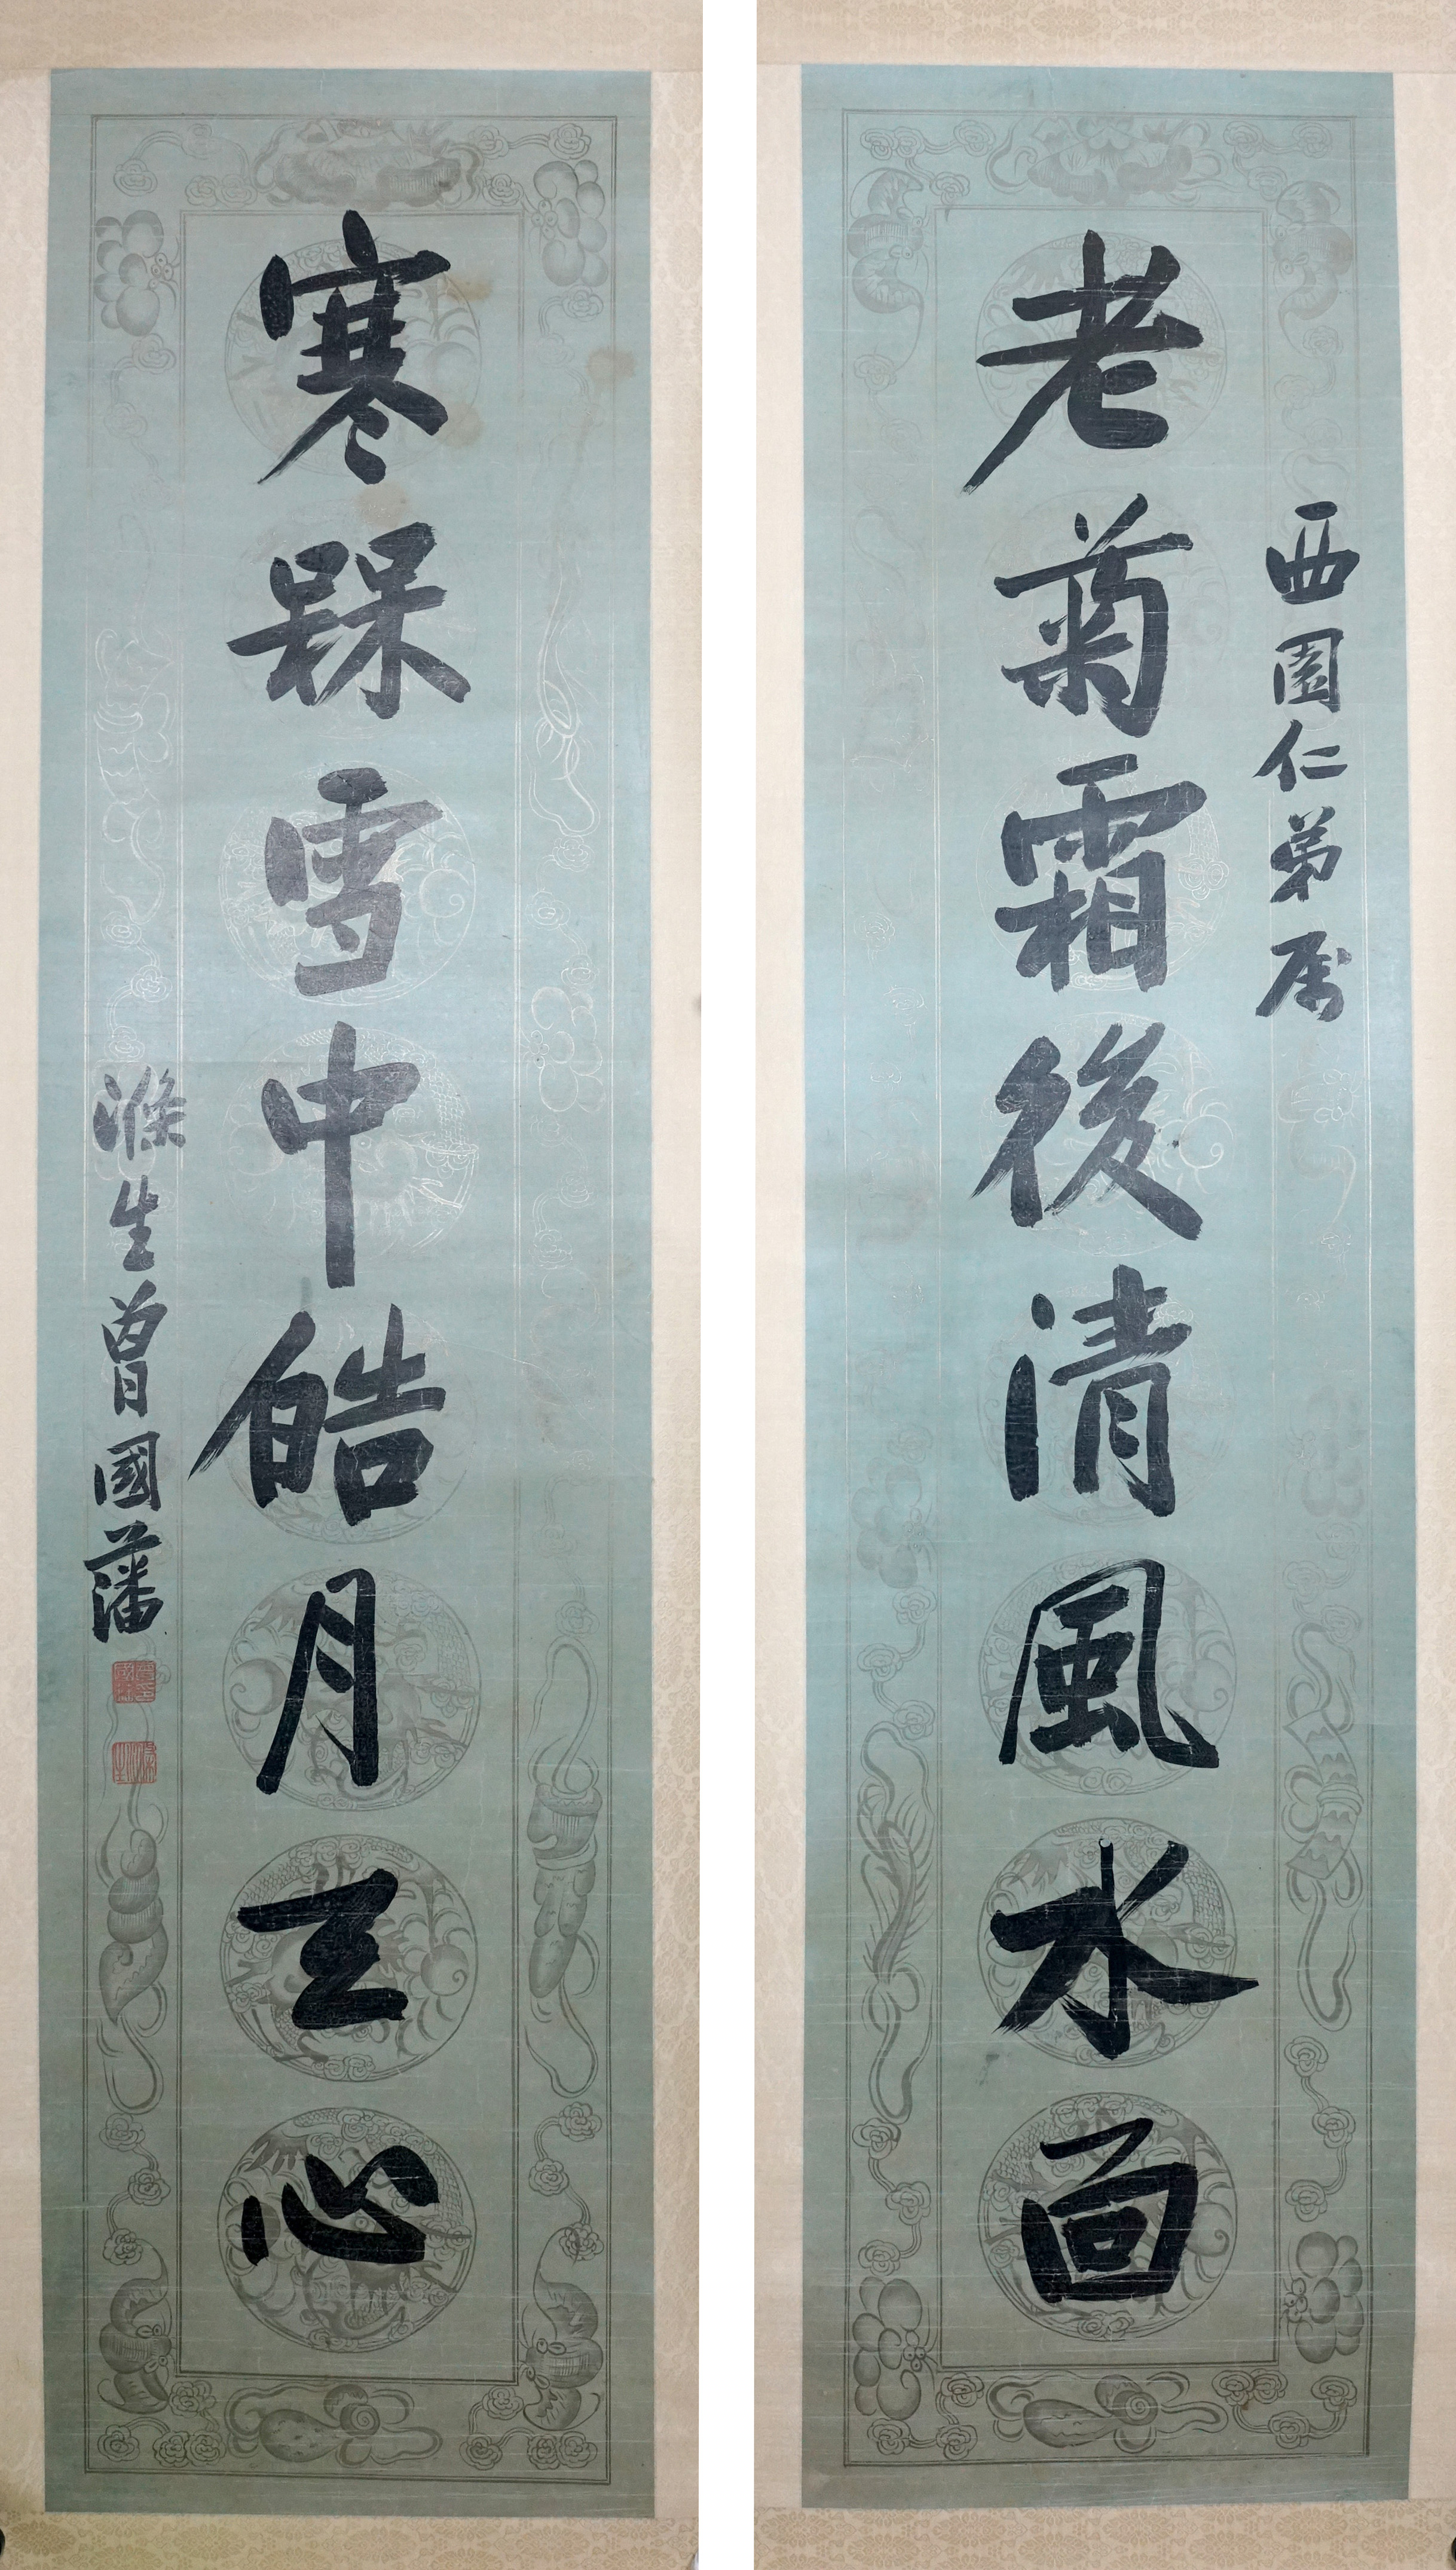 西園仁弟属
老菊霜後清風水面
寒槑雪中皓月天心
滌生曾國藩